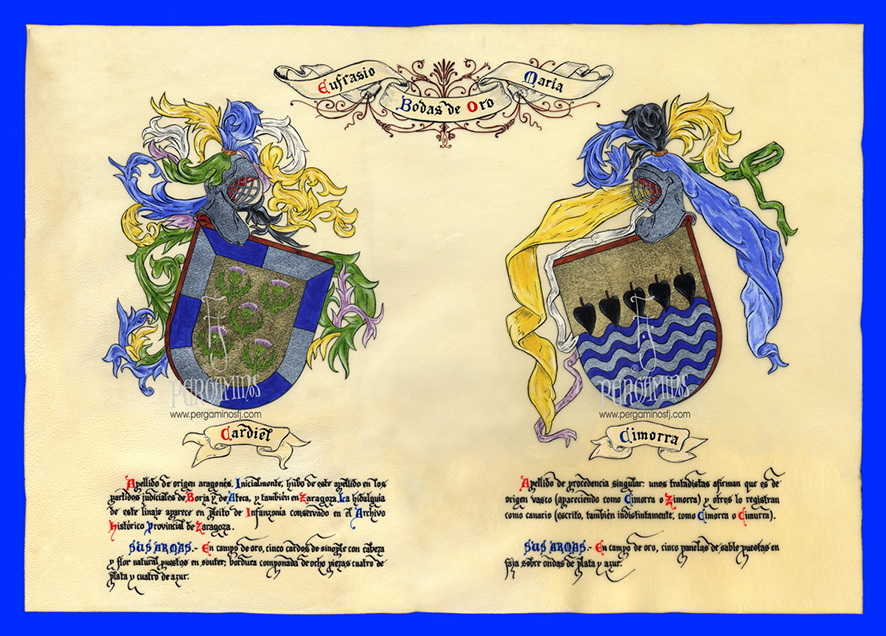 Eufrasio
Maria
Bodas de Oro
FJ
PERGAMINOS
www.pergaminosfj.com
FJ
PERGAMINOS
www.pergaminosfj.com
Cardiel
Apellido de origen aragonés. Inicialmente, hubo de este apellido en los
partidos judiciales de Borja y de Ateca, y también en Zaragoza. La hidalguía
de este linaje aparece en Pleito de Infanzonía conservado en el Archivo
Histórico Provincial de Zaragoza.
SUS ARMAS.- En campo de oro, cinco cardos de sinople con cabeza
y flor natural puestos en souter; bordura componada de ocho piezas cuatro de
plata y cuatro de azur.
Cimorra
Apellido de procedencia singular: unos tratadistas afirman que es de
origen vasco (apareciendo como Cimorra o Zimorra) y otros lo registran
como canario (escrito, también indistintamente, como Cimorra o Cimurra).
SUS ARMAS.- En campo de oro, cinco panelas de sable puestas en
faja sobre ondas de plata y azur.